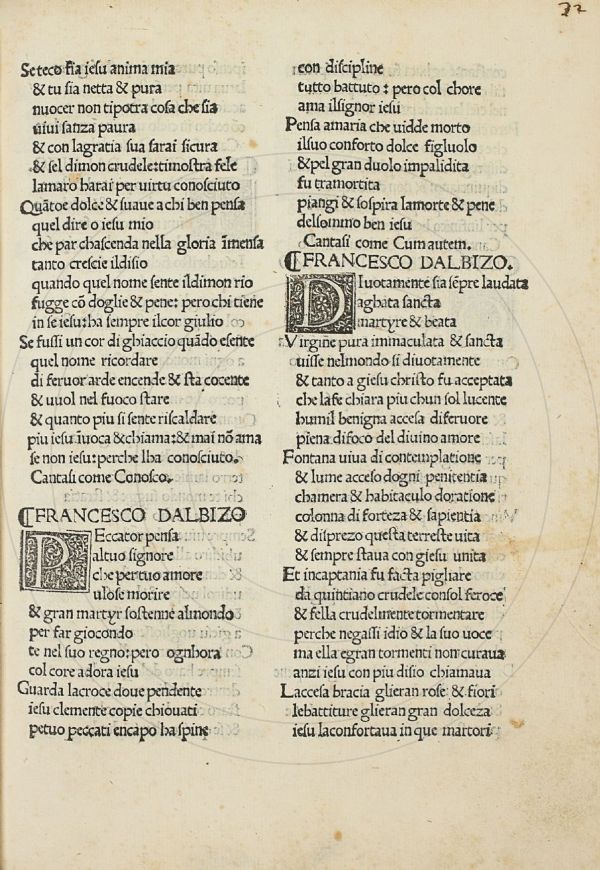 37
Se teco fia iesu anima mia
& tu sia netta & pura
nuocer non tipotra cosa che sia
uiui sanza paura
& con lagratia sua sarai sicura
& sel dimon crudele:timostra fele
lamaro harai per uirtu conosciuto
Quãtoe dolce & suaue a chi ben pensa
quel dire o iesu mio
che par chascenda nella gloria ĩmensa
tanto crescie ildisio
quando quel nome sente ildimon rio
fugge cõ doglie & pene: pero chi tiene
in se iesu:ha sempre ilcor giulio
Se fussi un cor di ghiaccio quãdo esente
quel nome ricordare
di feruor arde encende & sta cocente
& uuol nel fuoco stare
& quanto piu si sente riscaldare
piu iesu ĩuoca & chiama:& mai nõ ama
se non iesu:perche lha conosciuto.
Cantasi come Conosco.
❡FRANCESCO DALBIZO
PEccator pensa
altuo signore
che per tuo amore
uolse morire
& gran martyr sostenne almondo
per far giocondo
te nel suo regno:pero ognhora
col core adora iesu
Guarda lacroce doue pendente
iesu clemente copie chiouati
petuo peccati encapo ha spine
con discipline
tutto battuto : pero col chore
ama ilsignor iesu
Pensa amaria che uidde morto
ilsuo conforto dolce figluolo
& pel gran duolo impalidita
fu tramortita
piangi & sospira lamorte & pene
delsommo ben iesu
Cantasi come Cum autem.
❡FRANCESCO DALBIZO.
DIuotamente sia sẽpre laudata
aghata sancta
martyre & beata
Virgine pura immaculata & sancta
uisse nelmondo si diuotamente
& tanto a giesu christo fu acceptata
che lafe chiara piu chun sol lucente
humil benigna accesa diferuore
piena difoco del diuino amore
Fontana uiua di contemplatione
& lume acceso dogni penitentia
chamera & habitaculo doratione
colonna di forteza & sapientia
& disprezo questa terreste uita
& sempre staua con giesu unita
Et incaptania fu facta pigliare
da quintiano crudele consol feroce
& fella crudelmente tormentare
perche negassi idio & la suo uoce
ma ella egran tormenti non curaua
anzi iesu con piu disio chiamaua
Laccesa bracia glieran rose & fiori
lebattiture glieran gran dolceza
iesu laconfortaua in que martori